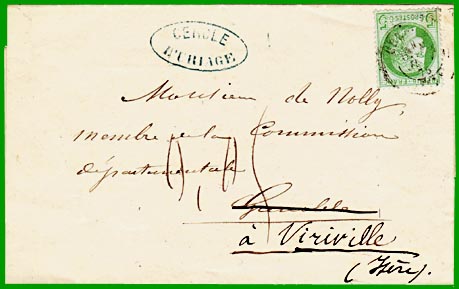 CERCLE
D'URIAGE
5 POSTES 5
Monsieur de Nolly,
membre de la Commission
départementale
Grenoble
à Viriville
(Isère).